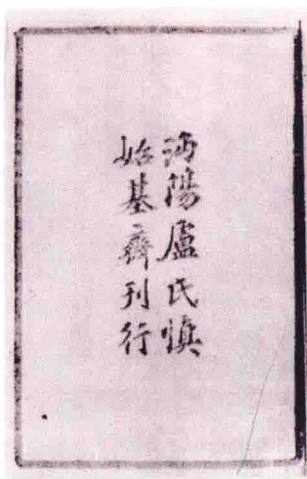 沔陽盧氏慎
始基齋刊行